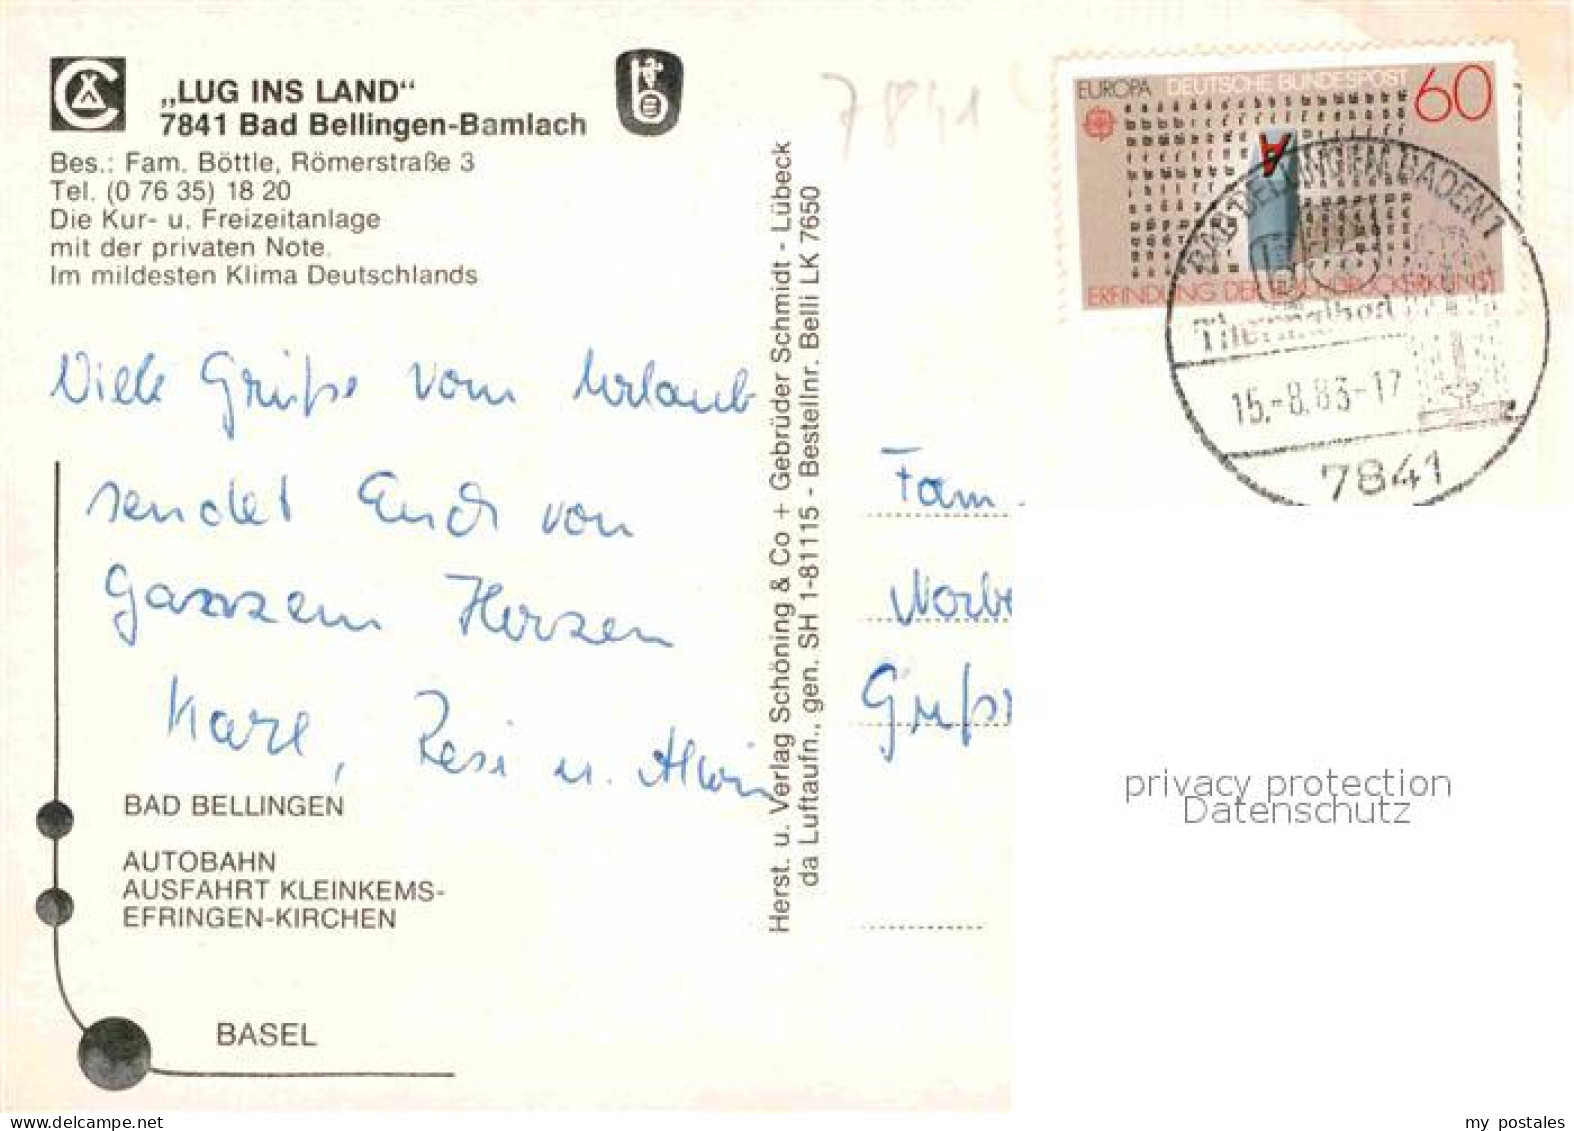 „LUG INS LAND“
7841 Bad Bellingen-Bamlach
Bes.: Fam. Böttle, Römerstraße 3
Tel. (0 76 35) 18 20
Die Kur- u. Freizeitanlage
mit der privaten Note.
Im mildesten Klima Deutschlands
Viele Grüße vom Urlaub
sendet Euch von
Ganzem Herzen
Karl, Resi u. Alwin
BAD BELLINGEN
AUTOBAHN
AUSFAHRT KLEINKEMS-
EFRINGEN-KIRCHEN
BASEL
Herst. u. Verlag Schöning & Co + Gebrüder Schmidt - Lübeck
da Luftaufn., gen. SH 1-81115 - Bestellnr. Belli LK 7650
7841
EUROPA DEUTSCHE BUNDESPOST 60
ERFINDUNG DER BUCHDRUCKERKUNST
BAD BELLINGEN, BADEN 1
Thermalbad
15.-8.83-17
7841
Fam.
Norbe
Grußn
privacy protection
Datenschutz
my postales